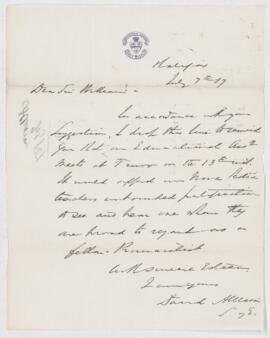 Halifax
July 7th 87
Dear Sir William:-
In accordance with your
suggestion, I drop this line to remind
you that our Educational Assn
meets at Truro on the 13th inst.
It would afford our Nova Scotia
teachers unbounded satisfaction
to see and hear one whom they
are proud to regard as a
fellow-Provincialist.
With sincere Esteem,
I am yours
David Allison